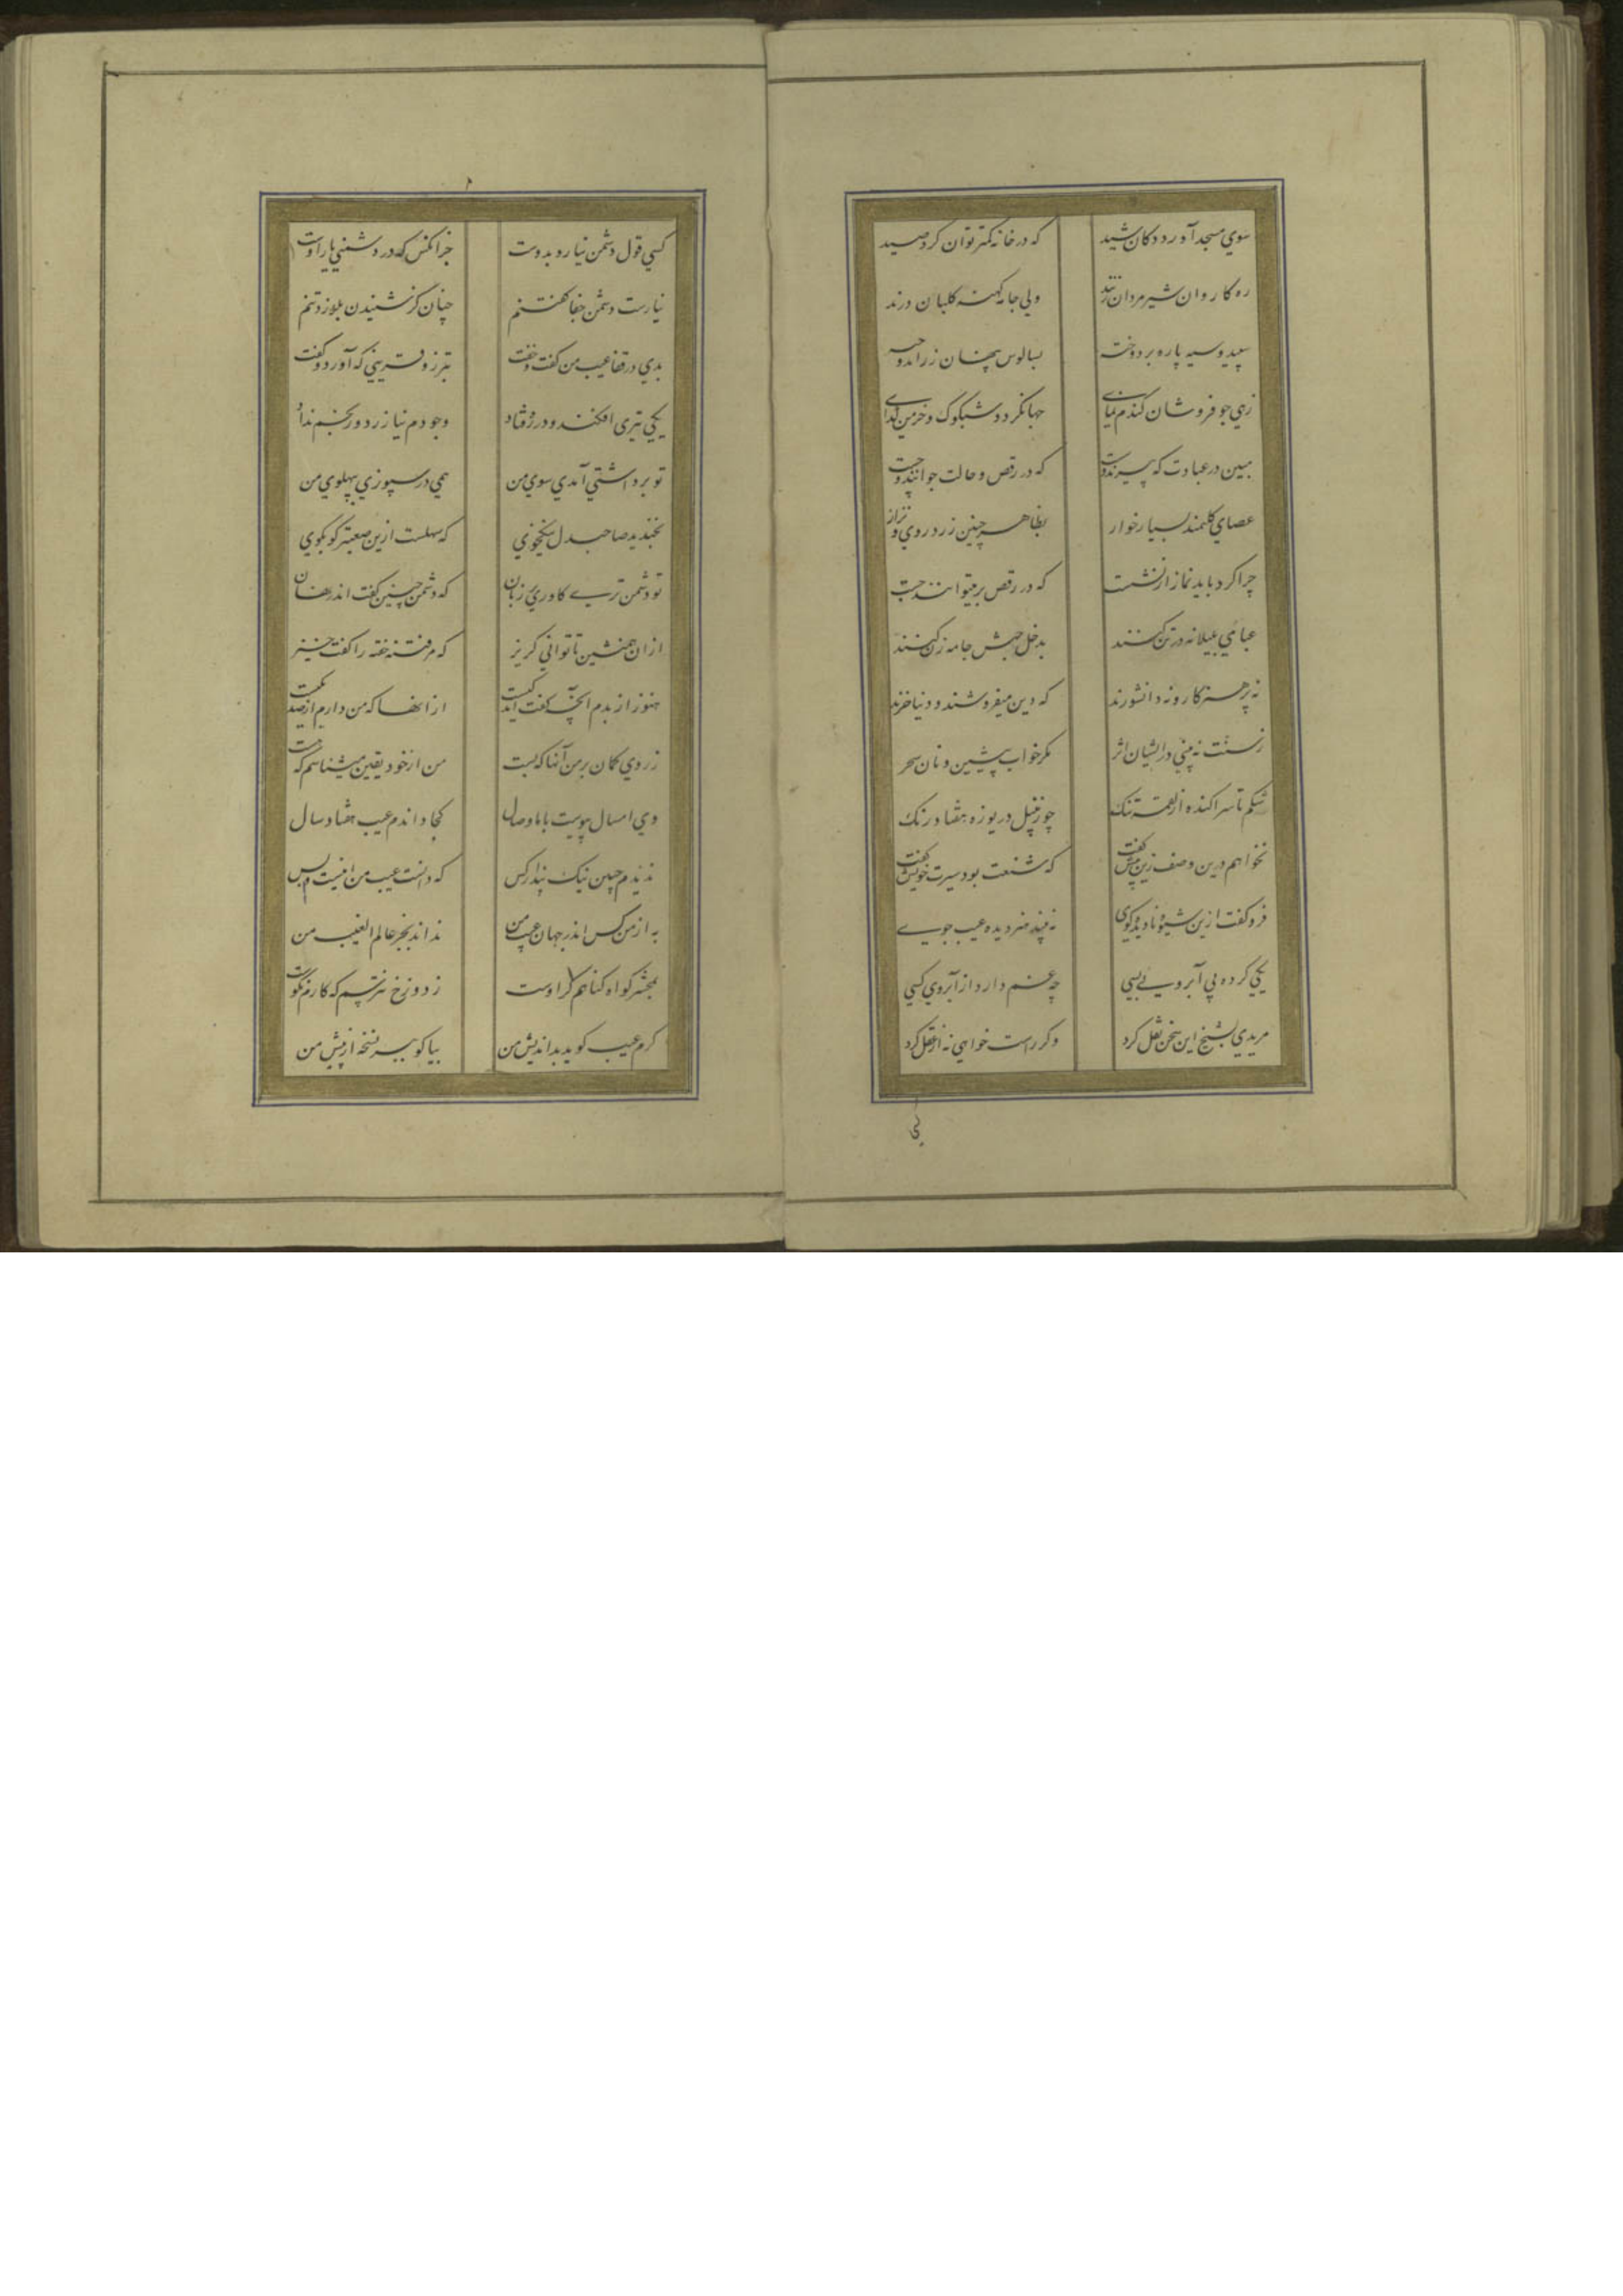 سوي مسجد آورد دکان شید
که در خانه کمتر توان کرد صید
ره کاروان شیرمردان زنند
ولي جامه کهنه کلبان درند
سپید و سیه پاره بر دوخته
بسالوس پنهان زر اندوخته
زهي جو فروشان کندم نماي
جهانکرد و شبکوک و خرمن کداي
مبین در عبادت که پیرند و سست
که در رقص و حالت جوانند و چست
عصاي کلیمند بسیار خوار
بظاهر چنین زرد روي و نزار
چرا کرد باید نماز از نشست
که در رقص بر میتوانند جست
عباي بلیلانه در تن کنند
بدخل حبش جامه زن کنند
نه پرهیزکار و نه دانشورند
که دین میفروشند و دنیا خرند
ز سنت نه بیني در ایشان اثر
مکر خواب پیشین و نان سحر
شکم تا سر اکنده از لقمه تنک
چو زنبیل دریوزه هفتاد رنک
نخواهم درین وصف زین بیش کفت
که شنعت بود سیرت خویش کفت
فرو کفت ازین شیوه نادیده کوي
نه بیند هنر دیده عیب جوي
یکي کرده بي آبرویي بسي
چه غم دارد از آبروي کسي
مریدي بشیخ این سخن نقل کرد
وکر راست خواهي نه از عقل کرد
کسي قول دشمن نیارد بدوست
جز انکس که در دشمني یار اوست
نیارست دشمن جفا کفتنم
چنان کز شنیدن بلرزد تنم
بدي در قفا عیب من کفت و خفت
بتر زو قریني که آورد و کفت
یکي تیري افکند و در ره فتاد
وجودم نیازرد و رنجم نداد
تو برداشتي آمدي سوي من
همي در سپوزي بپهلوي من
بخندید صاحبدل نیکخوي
که سهلست ازین صعبتر کو بکوي
تو دشمن تري کاوري بر زبان
که دشمن چنین کفت اندر نهان
ازان همنشین تا تواني کریز
که مر فتنه خفته را کفت خیز
هنوز از بدم آنچه کفت اندکیست
از انها که من دارم از صد یکیست
ز روي کمان بر من آنها که بست
من از خود یقین میشناسم که هست
وي امسال پیوست با ما وصال
کجا داندم عیب هفتاد سال
به از من کس اندر جهان عیب من
نداند بجز عالم الغیب من
ندیدم چنین نیک پندار کس
که دانست عیب من اینست و بس
بمحشر کواه کناهم کر اوست
ز دوزخ نترسم که کارم نکوست
کرم عیب کوید بد اندیش من
بیا کو ببر نسخه از پیش من